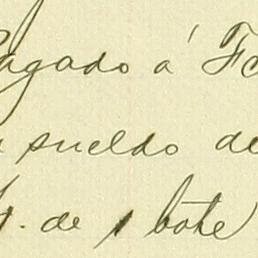 Pagado á
sueldo de
de 1 bote